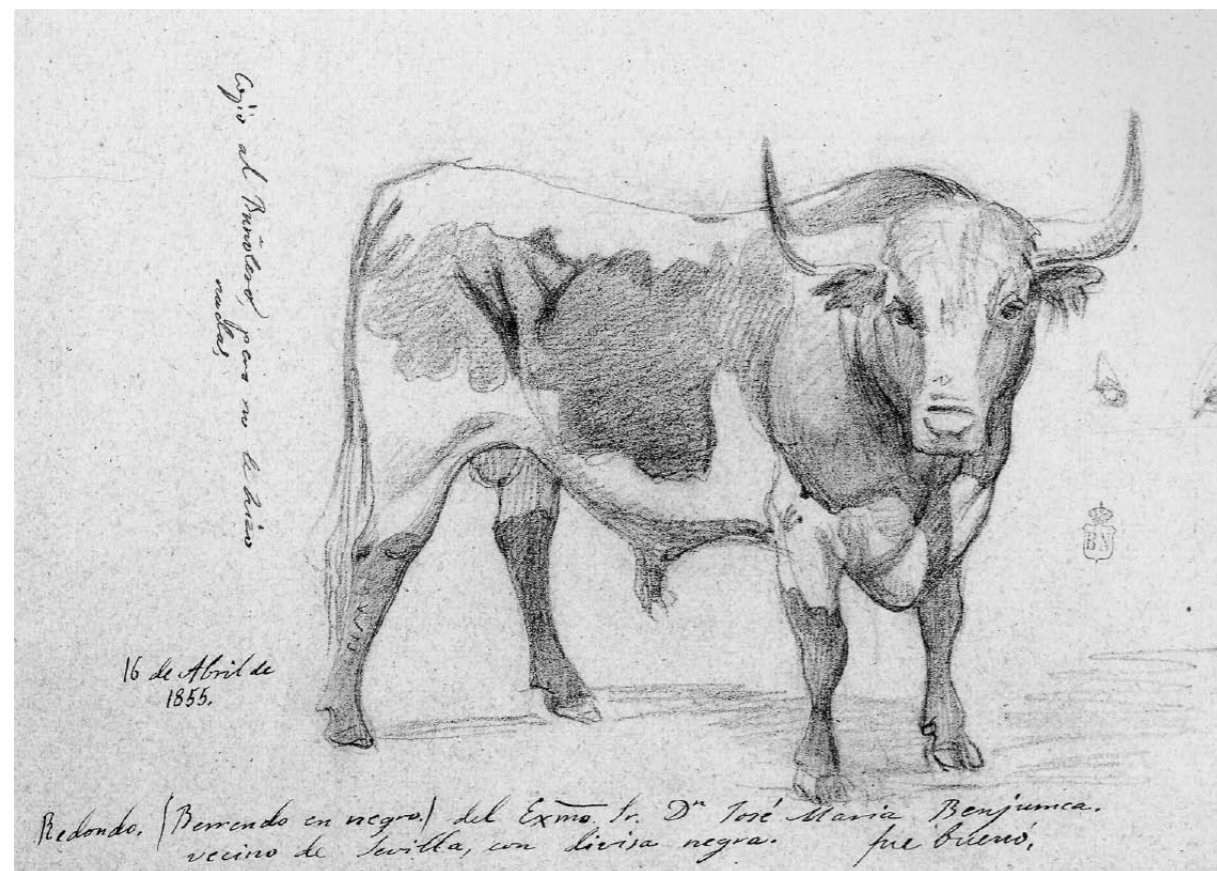 Cojio al Buñolero, pero no le hizo
nada.
16 de Abril de
1855.
BN
Redondo. (Berrendo en negro.) del Exmo. Sr. Dn José Maria Benjumea.
vecino de Sevilla, con divisa negra. fue bueno.